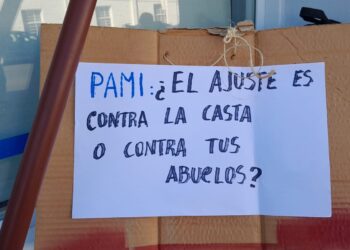 PAMI:¿EL AJUSTE ES
CONTRA LA CASTA
O CONTRA TUS
ABUELOS?